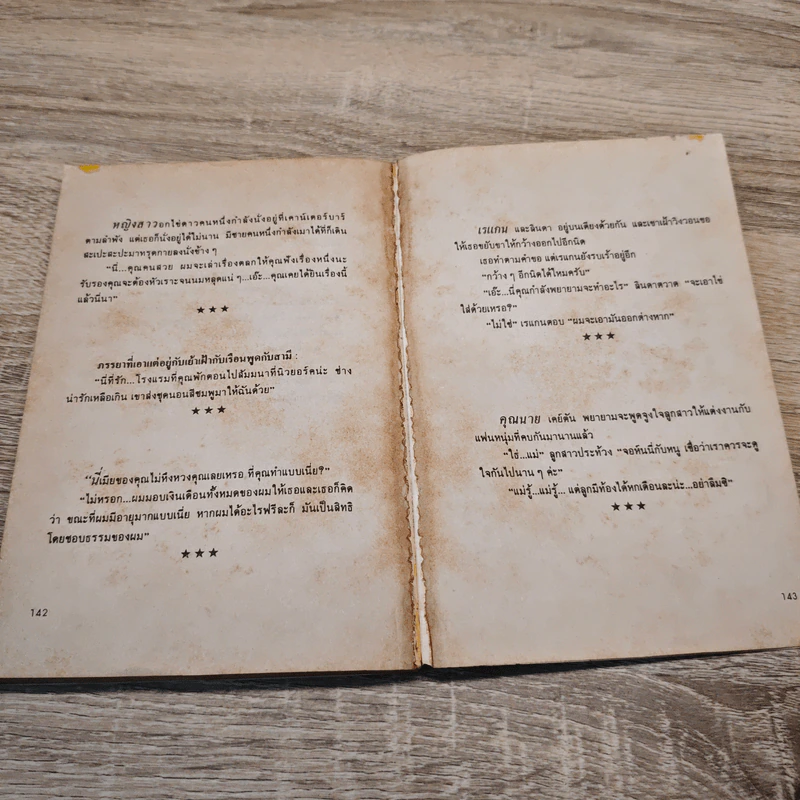 หญิงสาวอกไข่ดาวคนหนึ่งกำลังนั่งอยู่ที่เคาน์เตอร์บาร์
ตามลำพัง แต่เธอก็นั่งอยู่ได้ไม่นาน มีชายคนหนึ่งกำลังเมาได้ที่ก็เดิน
สะเปะสะปะมาทรุดกายลงนั่งข้าง ๆ
"นี่...คุณคนสวย ผมจะเล่าเรื่องตลกให้คุณฟังเรื่องหนึ่งนะ
รับรองคุณจะต้องหัวเราะจนนมหลุดแน่ ๆ...เอ๊ะ...คุณเคยได้ยินเรื่องนี้
แล้วนี่นา"
★★★
ภรรยาที่เอาแต่อยู่กับเย้าเฝ้ากับเรือนพูดกับสามี :
"นี่ที่รัก...โรงแรมที่คุณพักตอนไปสัมมนาที่นิวยอร์คน่ะ ช่าง
น่ารักเหลือเกิน เขาส่งชุดนอนสีชมพูมาให้ฉันด้วย"
★★★
"นี่เมียของคุณไม่หึงหวงคุณเลยเหรอ ที่คุณทำแบบเนี่ย?"
"ไม่หรอก...ผมมอบเงินเดือนทั้งหมดของผมให้เธอและเธอก็คิด
ว่า ขณะที่ผมมีอายุมากแบบเนี่ย หากผมได้อะไรฟรีละก็ มันเป็นสิทธิ
โดยชอบธรรมของผม"
★★★
142
เรแกน และลินดา อยู่บนเตียงด้วยกัน และเขาเฝ้าวิงวอนขอ
ให้เธอขยับขาให้กว้างออกไปอีกนิด
เธอทำตามคำขอ แต่เรแกนยังรบเร้าอยู่อีก
"กว้าง ๆ อีกนิดได้ไหมครับ"
"เอ๊ะ...นี่คุณกำลังพยายามจะทำอะไร" ลินดาตวาด "จะเอาไข่
ใส่ด้วยเหรอ?"
"ไม่ใช่" เรแกนตอบ "ผมจะเอามันออกต่างหาก"
★★★
คุณนาย เคย์ตัน พยายามจะพูดจูงใจลูกสาวให้แต่งงานกับ
แฟนหนุ่มที่คบกันมานานแล้ว
"โธ่...แม่" ลูกสาวประท้วง "จอห์นนี่กับหนู เชื่อว่าเราควรจะดู
ใจกันไปนาน ๆ ค่ะ"
"แม่รู้...แม่รู้... แต่ลูกมีท้องได้หกเดือนละน่ะ...อย่าลืมซิ"
★★★
143